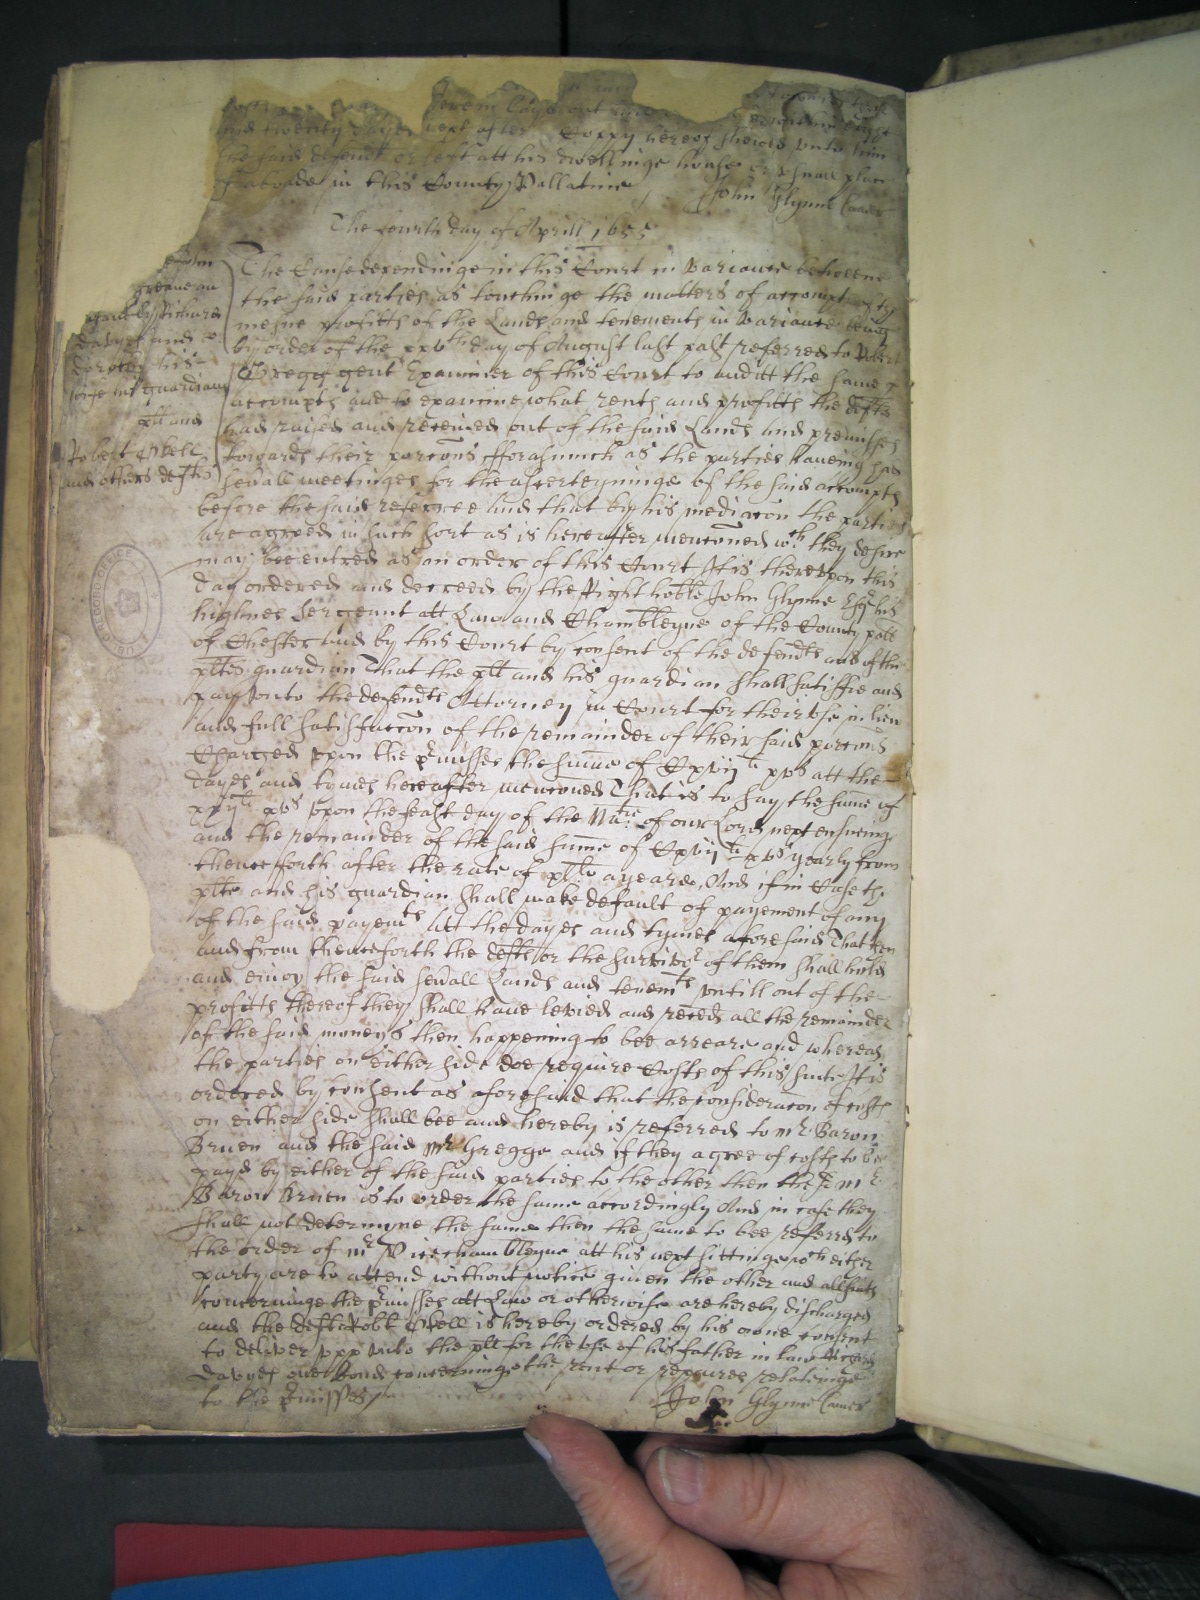 seven dayes
and twenty dayes next after Coppy hereof shewed unto him
the said defendt or left att his dwellinge house or usuall place
of aboade in this County Pallatine John Glynne Camer
The fourth day of Aprill 1655
The Cause dependinge in this Court in Variance betweene
the said parties as touchinge the matters of accompt
mesne profitts of the Lands and tenements in Variance being
by order of the xxvth day of August last past referred to Robert
Gregg gent Examiner of this Court to auditt the same
accompts and to examine what rents and profitts the defts
had raysed and received out of the said Lands and premisses
towards their porcons fforasmuch as the parties haveing had
sevall meetinges for the ascerteyninge of the said accompts
before the said referree And that by his mediacon the parties
are agreed in such sort as is hereafter menconed wch they desire
may bee entred as an order of this Court It is thereupon this
day ordered and decreed by the Right hoble John Glynne Esqr his
highnes Serjeant att Law and Chamblayne of the County palt
of Chester And by this Court by consent of the defendts and of the
plts guardian That the plt and his guardian shall satisfie and
pay unto the defendts Attorney in Court for their use in lieu
and full satisfaccon of the remainder of their said porcons
Charged upon the pmisses the summe of Cxvijli xvs att the
dayes and tymes hereafter menconed That is to say the summe of
xvs upon the feast day of the of our Lord next ensueing
and the remainder of the said summe of Cxvijli xvs yearly from
thenceforth after the rate of xlli a yeare, And if in Case the
plte and his guardian shall make default of payement of any
of the said payemts att the dayes and tymes aforesaid That then
and from thenceforth the defts or the survivor of them shall hold
and enioy the said sevall Lands and tenemts untill out of the
profitts thereof they shall have levied and reced all the remainder
of the said moneys then happening to bee arreare and whereas
the parties on either side doe require Costs of this suite It is
ordered by consent as aforesaid that the consideracon of costs
on either side shall bee and hereby is referred to mr Baron
Bruen and the said mr Gregge and if they agree of costs to be
payd by either of the said parties to the other then the sd mr
Baron Bruen is to order the same accordingly And in case they
shall not determyne the same then the same to bee referred to
the order of mr Vicechamblayne att his next sittinge wch either
party are to attend without notice given the other and all suits
concerninge the pmisses att Law or otherwise are hereby discharged
and the deft Robt is hereby ordered by his owne consent
to deliver upp unto the plt for the use of his father in law Richard
Davyes one bond concerninge the rent or repaires relatinge
to the pmisses John Glynne Camer
John
Richard
Davyes and
his
wife his guardian
plt and
Robert
and others defts